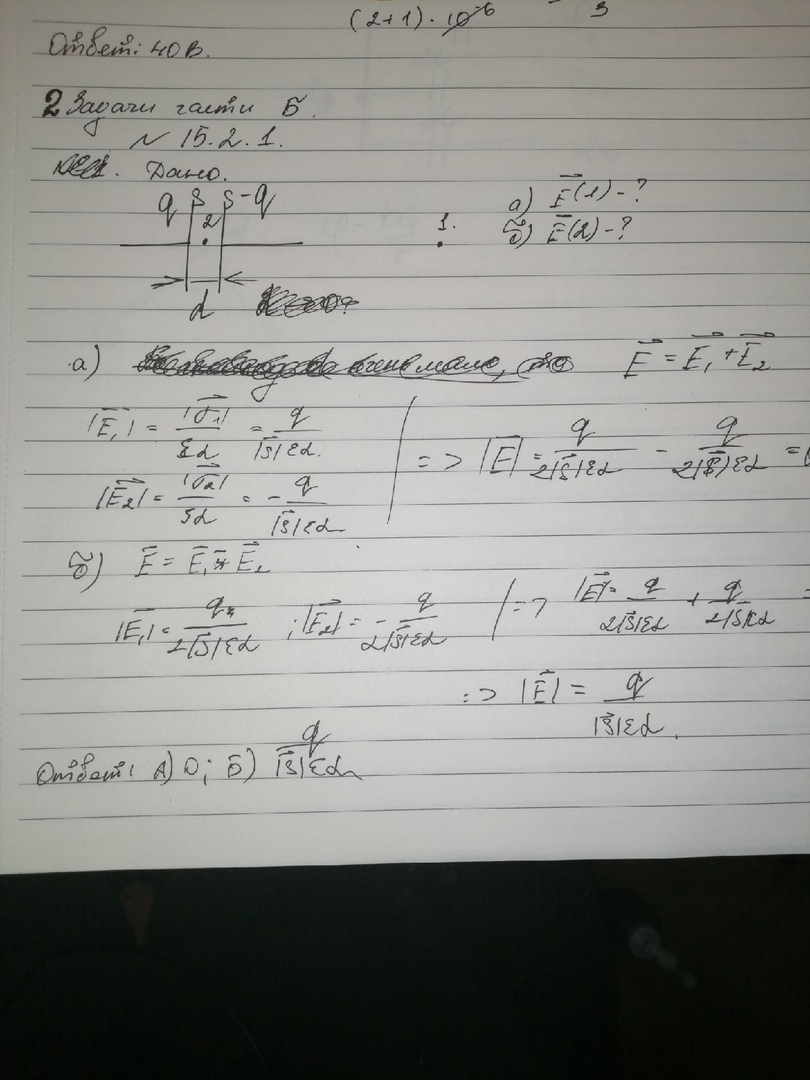 (2+1)·10⁻⁶ 3
Ответ: 40В.
2 Задачи части Б.
N 15.2.1.
Дано.
q S S -q
2
1.
а) E⃗(1) - ?
б) E⃗(2) - ?
d
а) E⃗ = E⃗₁ + E⃗₂
|E⃗₁| = |σ⃗₁|/εd = q/|S⃗|εd.
|E⃗₂| = |σ⃗₂|/sd = - q/|S⃗|εd
=> |E⃗| = q/2|S⃗|εd - q/2|S⃗|εd =
б) E⃗ = E⃗₁ + E⃗₂
|E⃗₁| = q/2|S⃗|εd ; |E⃗₂| = - q/2|S⃗|εd
=> |E⃗| = q/2|S⃗|εd + q/2|S⃗|εd =
=> |E⃗| = q/|S⃗|εd.
Ответ: А) 0; Б) q/|S⃗|εd